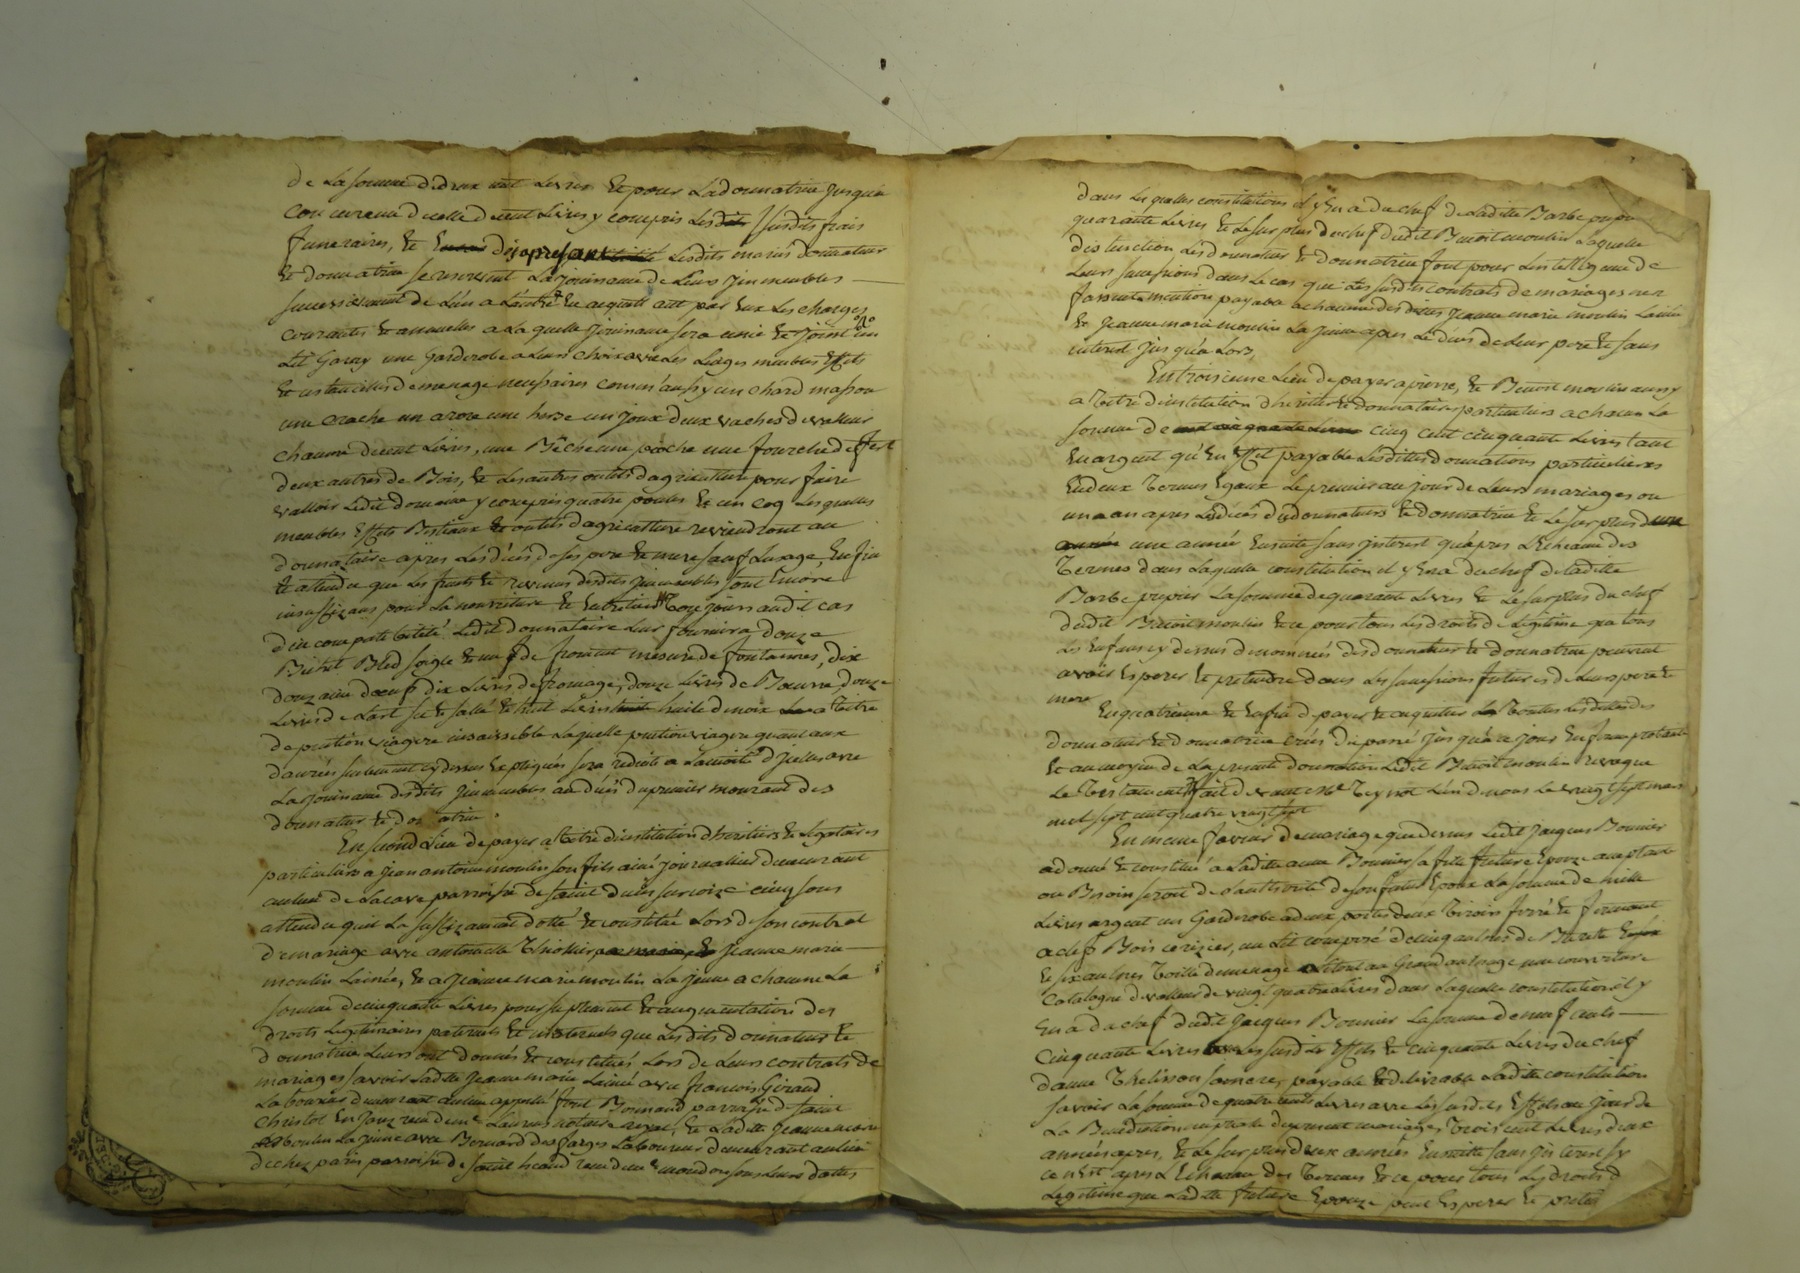 de La somme de deux cent Livres Et pour Ladonnatrice jusqu'a
concurence de celle de cent Livres y compris Lesdits susdits frais
funeraires, Et dejapresant Lesdits maries donnateur
Et donnatrice se reservent La jouissance de Leurs jmmeubles
successivement de L'un a L'autre En acquittant par Eux Les charges
courantes Et annuelles a Laquelle jouissance sera unie Et joint un
Lit Garny une Garderobe a Leur choix avec Les Linges meubles Effets
Et ustancilles de menage necessaires comm'aussy un chard
une un arore une herse un joux deux vaches de valleur
chacune de cent Livres, une Bêche une pioche une fourche de fert
deux autres de Bois, Et Les autres outils d'agriculture pour faire
valloir Ledit domaine y compris quatre poules Et un coq Lesquelles
meubles Effets Bestiaux Et outils d'agriculture reviendront au
donnataire apres Les déces de ses pere Et mere sauf Lusage, Enfin
Et attendu que Les fruits Et revenus desdits jmmeubles sont
insuffizans pour La nourriture Et Entretien toujours audit cas
d'incompatibilité Ledit donnataire Leur fournira douze
Bichet Bled seigle Et neuf de froment mesure de fontannes, dix
douzaine d'oeufs dix Livres de fromage, douze Livres de Beurre, douze
Livres de Lart sec Et sallé Et huit Livres huile de noix a titre
de pention viagere insaisissable Laquelle pention viagere quant aux
danrées seulement cydessus Expliquées sera reduite a La moitié d'jcelles avec
La jouissance desdits jmmeubles au déces du premier mourant des
donnateur Et donnatrice.
En second Lieu de payer a titre d'institution d'heritiers Et Legataires
particuliers a jean antoine moulin son fils ainé journalier demeurant
au Lieu de Lacave parroisse de saint cinq sous
attendu qu'il La suffizament dotté Et constitué Lors de son contrat
de mariage avec antoinette Thiollier jeanne marie
moulin Lainée, Et a jeanne marie moulin La jeune a chacune La
somme de cinquante Livres pour suplement Et augmentation des
droits Legitimaires paternels Et maternels que Lesdits donnateur Et
donnatrice Leurs ont donnés Et constitués Lors de Leurs contrats de
mariages savoir Ladite jeanne marie Lainée avec francois Giraud
Laboureur demeurant au Lieu appellé font Bonnand parroisse de saint
Christot En jarez reçu devant me Laurens notaire royal, Et Ladite jeanne marie
moulin La jeune avec Bernard desfarges Laboureur demeurant au Lieu
de chez paris parroisse de saint heand reçu devant me sous Leurs dattes
dans Lesquelles constitutions il y En a du chef de Ladite Barbe pupier
quarante Livres Et Le surplus du chef dudit Benoit moulin Laquelle
distinction Lesdonnateur Et donnatrice font pour Lintelligence de
Leurs successions dans Le cas que Les susdits contrats de mariages nen
fassent mention payable a chacune desdites jeanne marie moulin Lainée
Et jeanne marie moulin La jeune apres Le déces de Leur pere Et sans
interest jusqu'a Lors,
En troisieme Lieu de payer a pierre, Et Benoit moulin aussy
a titre d'institution d'heritiers Et donnataires particuliers a chacun La
somme de cinq cent cinquante Livres tant
En argent qu'En Effet payable Lesdittes donnations particulieres
En deux termes Egaux Le premier au jour de Leurs mariages ou
un an apres Lesdéces desdonnateur Et donnatrice Et Le surplus
une année Ensuite sans jnterest qu'apres L'Echeance des
Termes dans Laquelle constitution il y En a du chef de Ladite
Barbe pupier La somme de quarante Livres Et Le surplus du chef
dudit Benoit moulin Et ce pour tous Les droits de Legitime que tous
Les Enfans cy dessus denommés desdonnateur Et donnatrice peuvent
avoir Esperer Et pretendre dans Les successions futures de Leurs pere Et
mere
En quatrieme Et Enfin de payer Et acquitter Toutes Lesdettes des
donnateur Et donnatrice crées du passé jusqu'a ce jour
Et au moyen de La presente donnation Ledit Benoit moulin revoque
Le Testament fait devant me Teynot Lun de nous Le vingt sept mars
mil sept cent quatre vingt sept
En meme faveur de mariage que dessus Ledit jacques Bonnier
a donné Et constitué a Ladite anne Bonnier sa fille future Epouze acceptant
ou Besoin seroit de Lauthorité de son futur Epoux La somme de mille
Livres argent un Garderobe a deux portes deux Tiroirs ferré Et fermant
a clef Bois cerizier, un Lit composé de cinq aulnes de
Et six aulnes Toille de menage Le tout au Grand aulnage une couverture
Catalogne de valleur de vingt quatre Livres dans Laquelle constitution il y
En a du chef dudit jacques Bonnier La somme de neuf cents
Cinquante Livres Les susdits Effets Et cinquante Livres du chef
danne Thelisson sa mere, payable Et delivrable Ladite constitution
savoir La somme de quatre cents Livres avec Les susdits Effets au jour de
La Benediction nuptiale du present mariage, Trois cent Livres deux
années apres, Et Le surplus deux années Ensuitte sans jnterest sy
ce n'Est apres L'Echeance des Termes Et ce pour tous Les droits de
Legitime que Ladite future Epouze peut Esperer Et